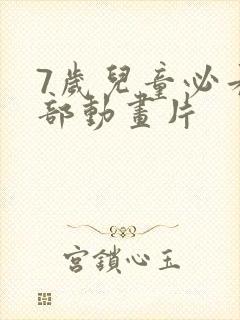 7歲兒童必
部動畫片
宮鎖心玉